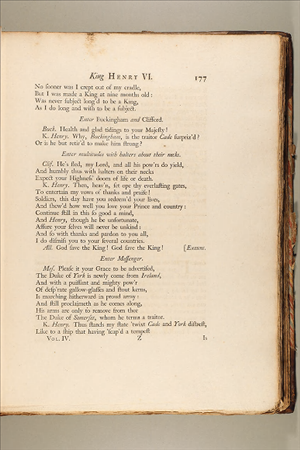 King HENRY VI. 177
No sooner was I crept out of my cradle,
But I was made a King at nine months old:
Was never subject long'd to be a King,
As I do long and wish to be a subject.
Enter Buckingham and Clifford.
Buck. Health and glad tidings to your Majesty!
K. Henry. Why, Buckingham, is the traitor Cade surpriz'd?
Or is he but retir'd to make him strong?
Enter multitudes with halters about their necks.
Clif. He's fled, my Lord, and all his pow'rs do yield,
And humbly thus with halters on their necks
Expect your Highness' doom of life or death.
K. Henry. Then, heav'n, set ope thy everlasting gates,
To entertain my vows of thanks and praise!
Soldiers, this day have you redeem'd your lives,
And shew'd how well you love your Prince and country:
Continue still in this so good a mind,
And Henry, though he be unfortunate,
Assure your selves will never be unkind:
And so with thanks and pardon to you all,
I do dismiss you to your several countries.
All. God save the King! God save the King! [Exeunt.
Enter Messenger.
Mes. Please it your Grace to be advertised,
The Duke of York is newly come from Ireland,
And with a puissant and mighty pow'r
Of desp'rate gallow-glasses and stout kerns,
Is marching hitherward in proud array:
And still proclaimeth as he comes along,
His arms are only to remove from thee
The Duke of Somerset, whom he terms a traitor.
K. Henry. Thus stands my state 'twixt Cade and York distrest,
Like to a ship that having 'scap'd a tempest
VOL. IV. Z Is